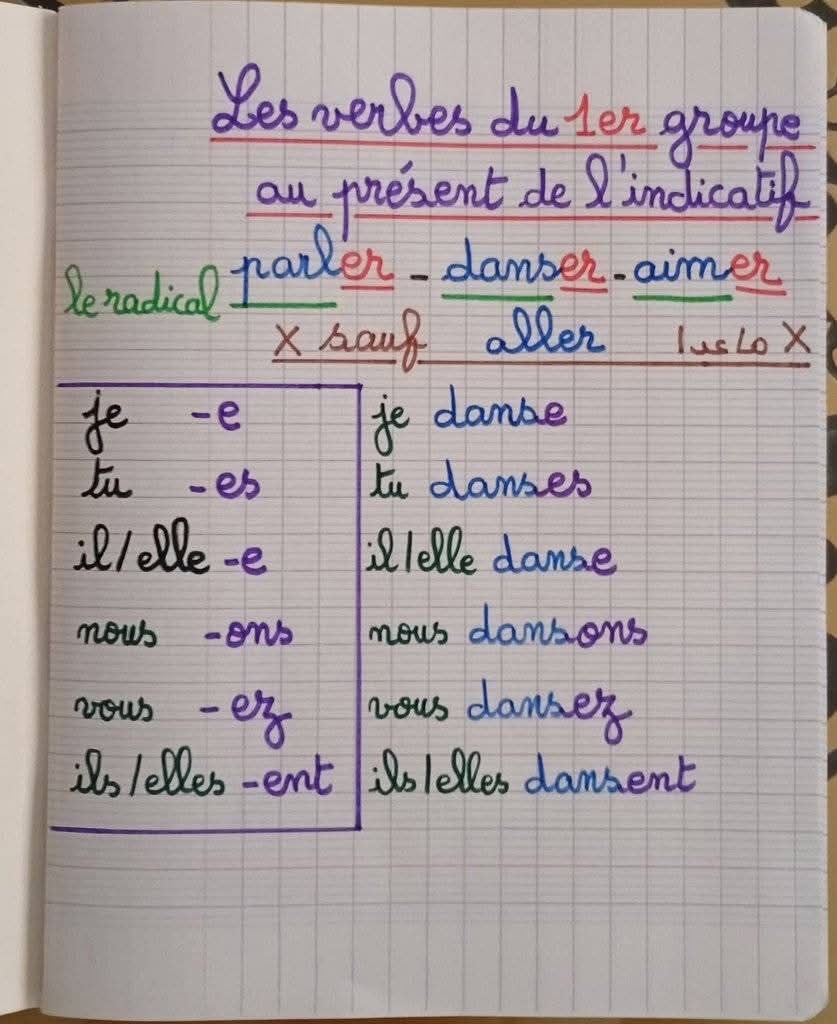 Les verbes du 1er groupe
au présent de l'indicatif
le radical parler - danser - aimer
X sauf aller ماعدا X
je -e je danse
tu -es tu danses
il/elle -e il/elle danse
nous -ons nous dansons
vous -ez vous dansez
ils/elles -ent ils/elles dansent